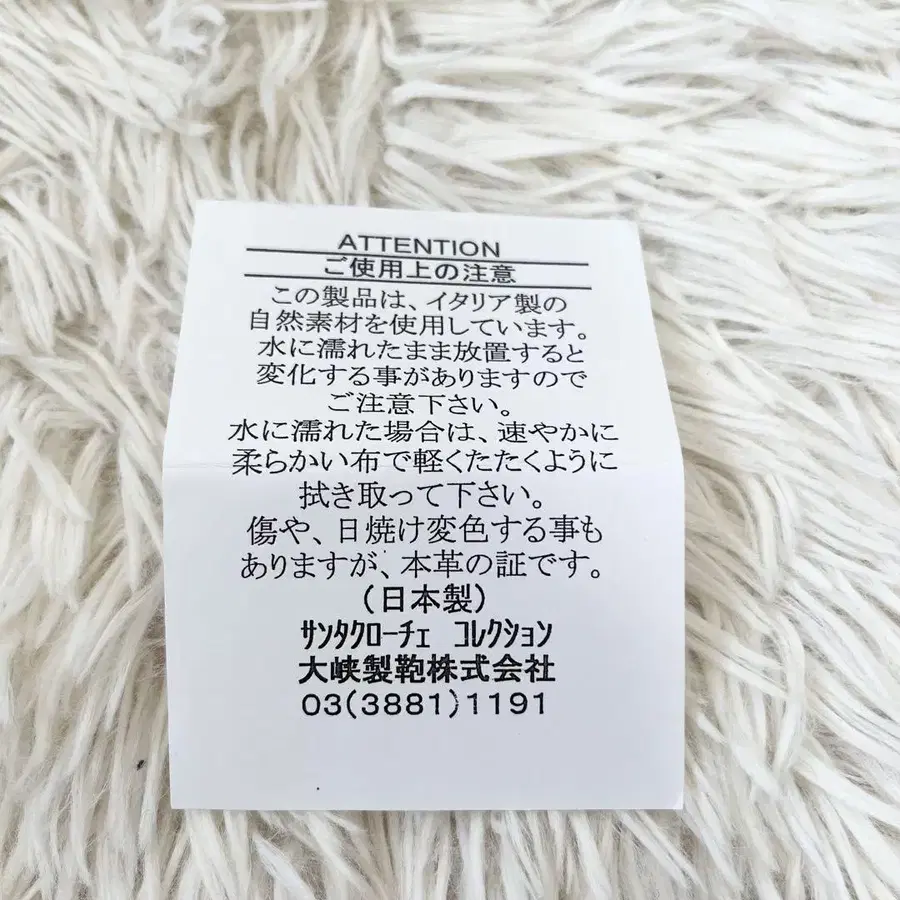 ATTENTION
ご使用上の注意
この製品は、イタリア製の
自然素材を使用しています。
水に濡れたまま放置すると
変化する事がありますので
ご注意下さい。
水に濡れた場合は、速やかに
柔らかい布で軽くたたくように
拭き取って下さい。
傷や、日焼け変色する事も
ありますが、本革の証です。
(日本製)
ｻﾝﾀｸﾛｰﾁｪ ｺﾚｸｼｮﾝ
大峡製鞄株式会社
03(3881)1191